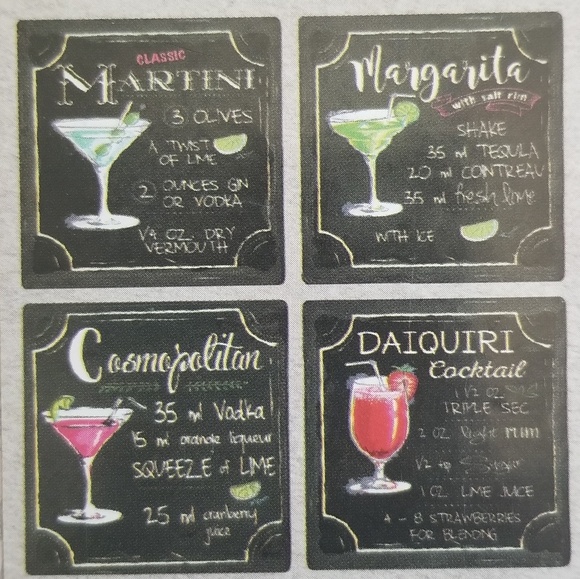 CLASSIC
MARTINI
3 OLIVES
A TWIST
OF LIME
2 OUNCES GIN
OR VODKA
1/4 OZ. DRY
VERMOUTH
Margarita
with salt rim
SHAKE
35 ml TEQUILA
20 ml COINTREAU
35 ml fresh lime
WITH ICE
Cosmopolitan
35 ml Vodka
15 ml orange liqueur
SQUEEZE of LIME
25 ml cranberry
juice
DAIQUIRI
Cocktail
1 1/2 OZ
TRIPLE SEC
2 OZ light rum
1/2 tsp Sugar
1 OZ LIME JUICE
4 - 8 STRAWBERRIES
FOR BLENDING